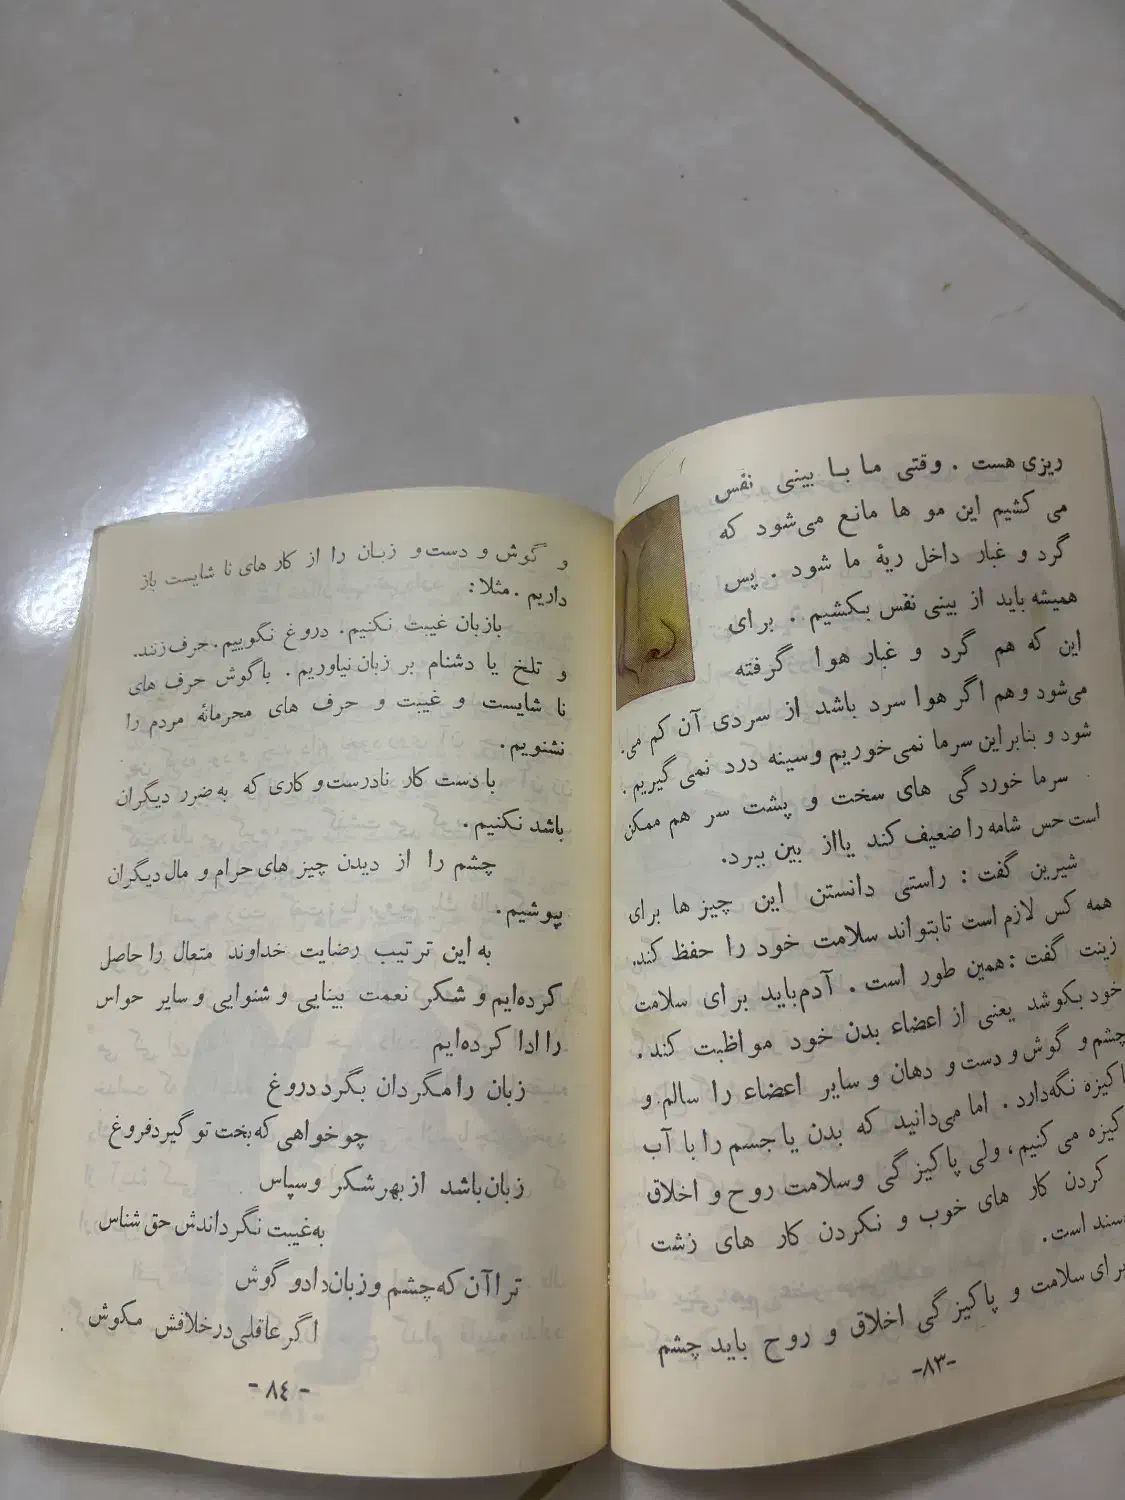 ریزی هست . وقتی ما با بینی نفس
می کشیم این مو ها مانع می‌شود که
گرد و غبار داخل ریهٔ ما شود . پس
همیشه باید از بینی نفس بکشیم . برای
این که هم گرد و غبار هوا گرفته
می‌شود وهم اگر هوا سرد باشد از سردی آن کم می.
شود و بنابراین سرما نمی‌خوریم وسینه درد نمی گیریم .
سرما خوردگی های سخت و پشت سر هم ممکن
است حس شامه را ضعیف کند یااز بین ببرد.
شیرین گفت : راستی دانستن این چیز ها برای
همه کس لازم است تابتواند سلامت خود را حفظ کند.
زینت گفت : همین طور است . آدم‌باید برای سلامت
خود بکوشد یعنی از اعضاء بدن خود مواظبت کند .
چشم و گوش و دست و دهان و سایر اعضاء را سالم و
اکیزه نگه‌دارد . اما می‌دانید که بدن یا جسم را با آب
کیزه می کنیم، ولی پاکیز گی وسلامت روح و اخلاق
کردن کار های خوب و نکردن کار های زشت
سند است.
برای سلامت و پاکیز گی اخلاق و روح باید چشم
-۸۳-
و گوش و دست و زبان را از کار های نا شایست باز
داریم . مثلا :
بازبان غیبت نکنیم. دروغ نگوییم . حرف زننده
و تلخ یا دشنام بر زبان نیاوریم . باگوش حرف های
نا شایست و غیبت و حرف های محرمانهٔ مردم را
نشنویم .
با دست کار نادرست و کاری که به ضرر دیگران
باشد نکنیم .
چشم را از دیدن چیز های حرام و مال دیگران
بپوشیم .
به این ترتیب رضایت خداوند متعال را حاصل
کرده‌ایم و شکر نعمت بینایی و شنوایی و سایر حواس
را ادا کرده‌ایم
زبان را مگردان بگرد دروغ
چو خواهی که بخت تو گیرد فروغ
زبان باشد از بهر شکر و سپاس
به غیبت نگرداندش حق شناس
ترا آن که چشم و زبان داد و گوش
اگر عاقلی در خلافش مکوش .
- ۸۴ -